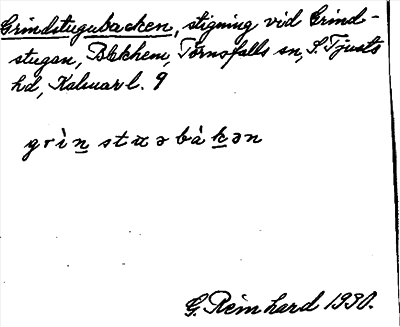 Grindstugubacken, stigning vid Grind-
stugan, Blekhem, Törnsfalls sn, S. Tjusts
hd, Kalmar l. 9
grìn̲stuəbàk̲ən
G. Reinhard 1930.